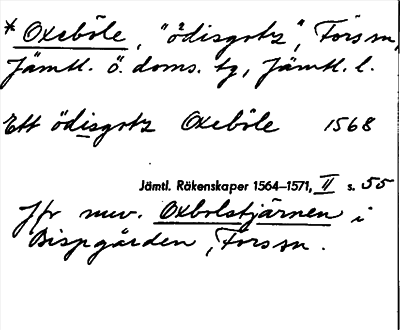 * Oxeböle, "ödisgotz", Fors sn,
Jämtl. ö. doms. tg, Jämtl. l.
Ett ödisgotz Oxeböle 1568
Jämtl. Räkenskaper 1564–1571, II s. 55
Jfr nuv. Oxbolstjärnen i
Bispgården, Fors sn.